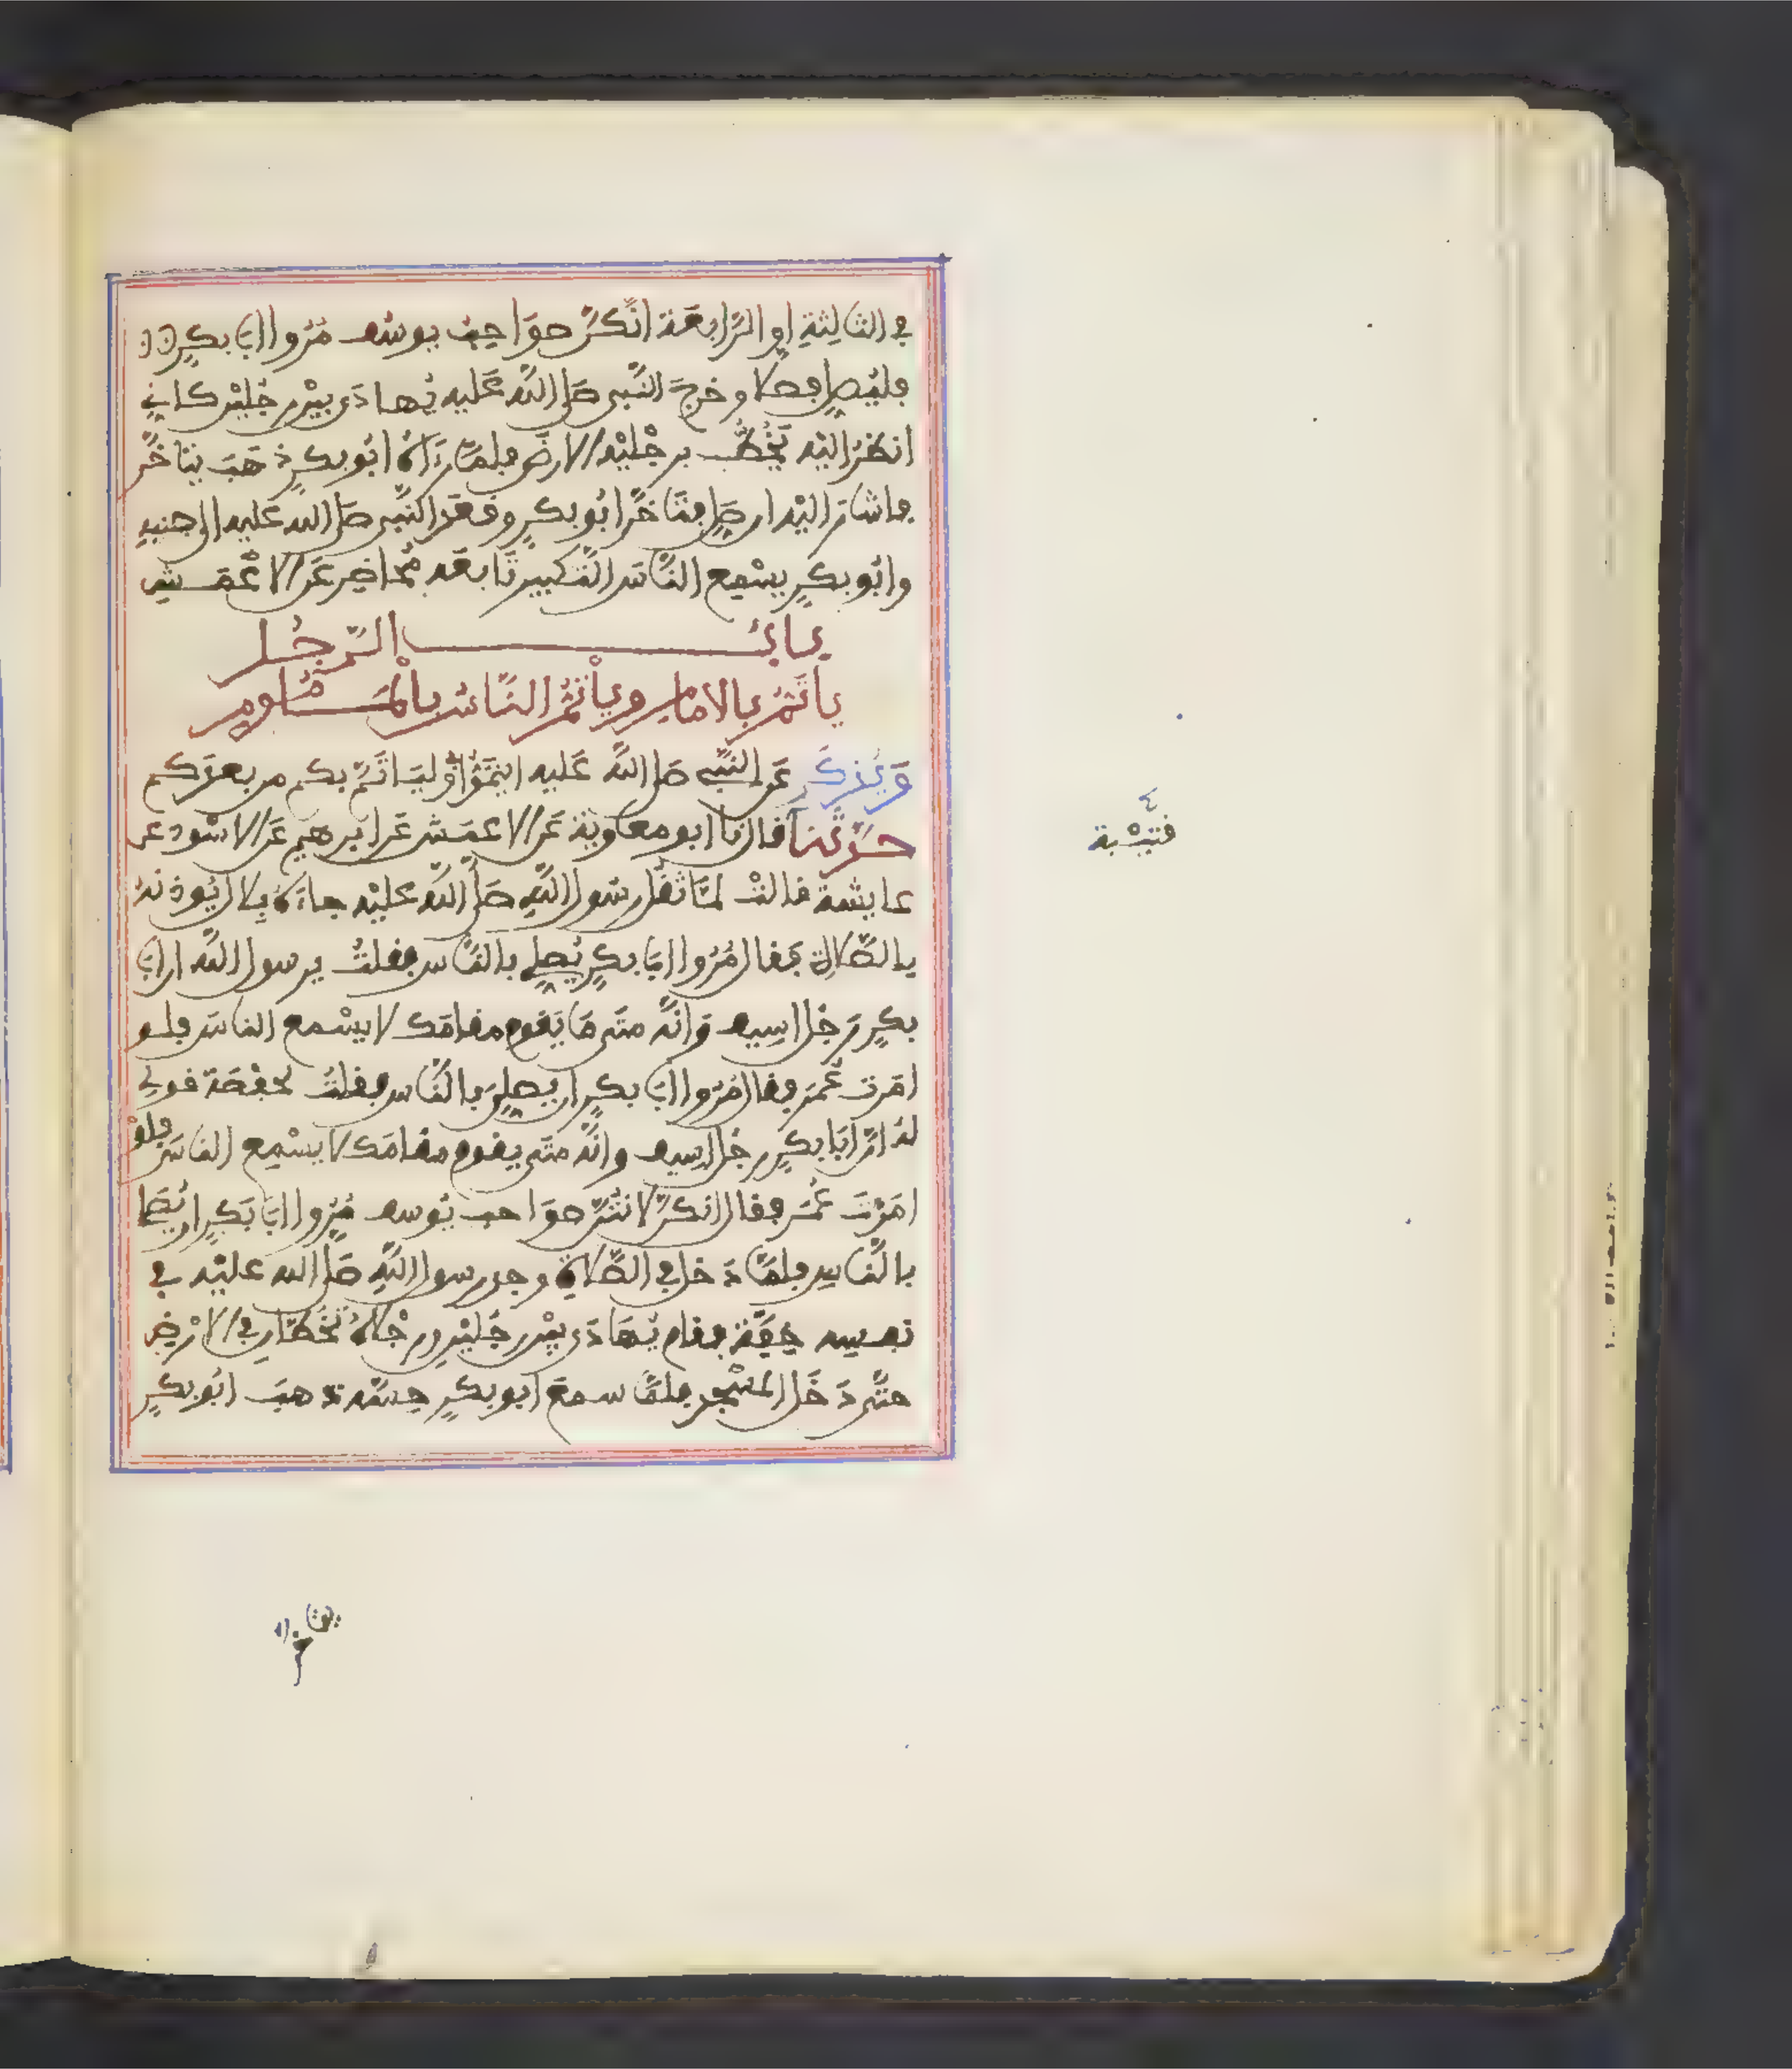 في الثالثة او الرابعة انكن صواحب يوسف مروا ابا بكر
فليصل فصلا وخرج النبي صلى الله عليه يهادى بين رجلين كاني
انظر اليه يخط برجليه الارض فلما رءاه ابو بكر ذهب يتاخر
فاشار اليه ان صل فتاخر ابو بكر وقعد النبي صلى الله عليه الى جنبه
وابو بكر يسمع الناس التكبير تابعه محاضر عن الاعمش
باب الرجل
ياتم بالامام وياتم الناس بالماموم
ويذكر عن النبي صلى الله عليه ايتموا وليأتم بكم من بعدكم
حدثنا قال نا ابو معاوية عن الاعمش عن ابرهيم عن الاسود عن
قتيبة
عايشة قالت لما ثقل رسول الله صلى الله عليه جاءه بلال يوذنه
بالصلاة فقال مروا ابا بكر يصلي بالناس فقلت يرسول الله ان ابا
بكر رجل اسيف وانه متى ما يقوم مقامك لا يسمع الناس فلو
امرت عمر فقال مروا ابا بكر ان يصلي بالناس فقلت لحفصة قولي
له ان ابا بكر رجل اسيف وانه متى يقوم مقامك لا يسمع الناس فلو
امرت عمر فقال انكن لانتن صواحب يوسف مروا ابا بكر ان يصلي
بالناس فلما دخل في الصلاة وجد رسول الله صلى الله عليه في
نفسه خفة فقام يهادى بين رجلين ورجلاه تخطان في الارض
حتى دخل المسجد فلما سمع ابو بكر حسه ذهب ابو بكر
يتاخر